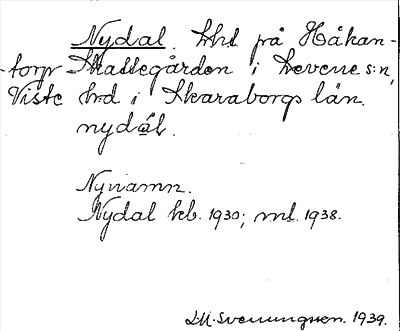 Nydal. hht på Håkan-
-torp Skattegården i Levene s:n,
Viste hrd i Skaraborgs län.
nydàl.
Nynamn.
Nydal kb. 1930; ml. 1938.
L.M. Svenungsson. 1939.